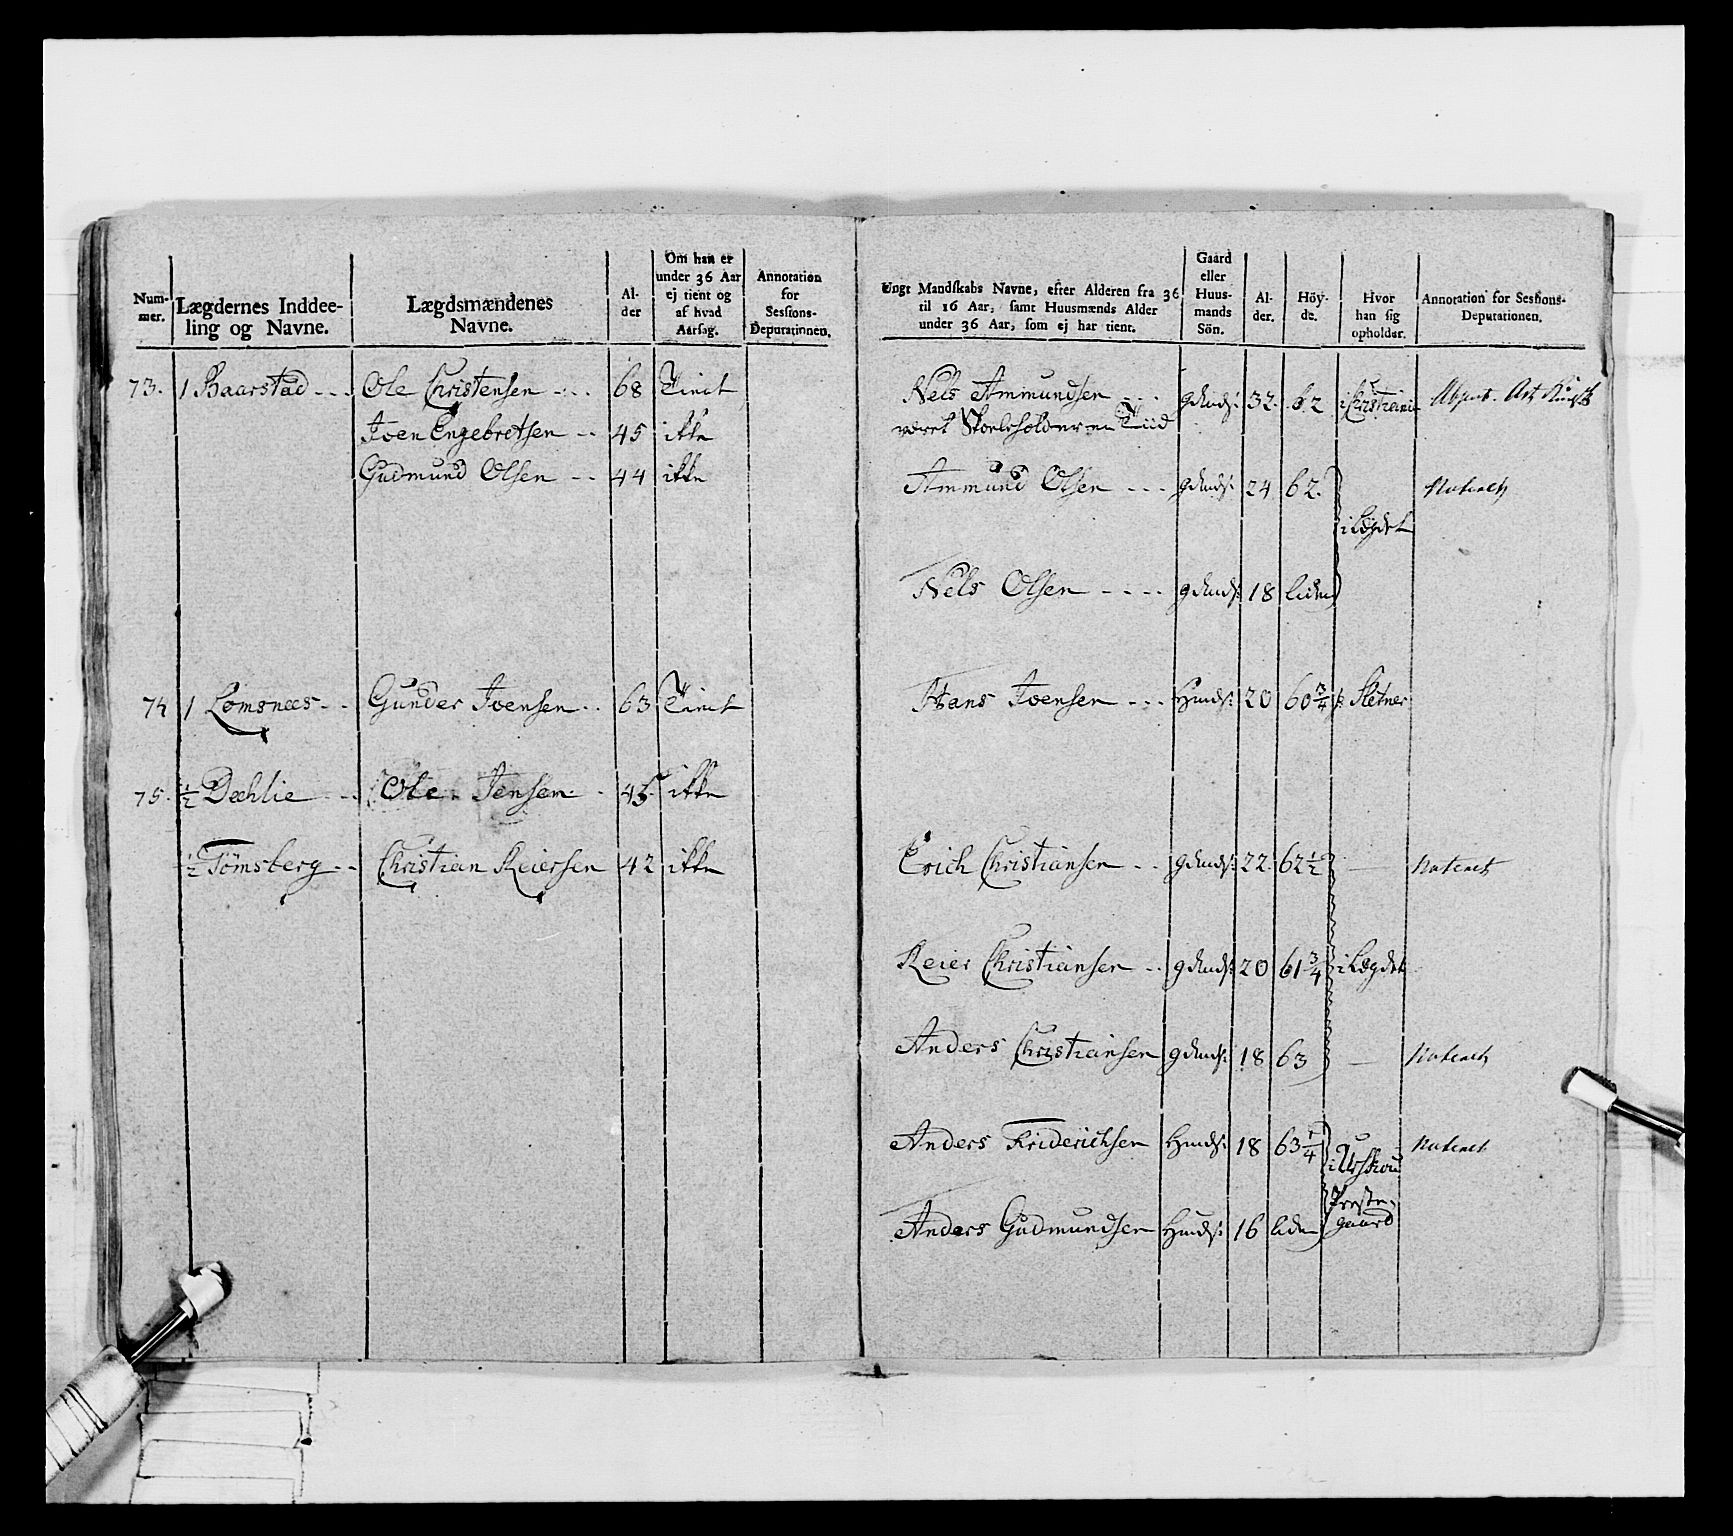 Num-
mer.
Lægdernes Inddee-
ling og Navne.
Lægdsmændenes
Navne.
Al-
der
Om han er
under 36 Aar
ej tient og
af hvad
Aarsag.
Annotation
for
Sessions-
Deputationen.
73. 1 Baarstad --- Ole Christensen --- 68 Tient
Joen Engebretsen -- 45 ikke
Gudmund Olsen -- 44 ikke
74 1 Lomsnæs -- Gunder Joensen -- 63 Tient
75. ½ Dæhlie -- Ole Jensen 45. ikke
½ Tömsberg -- Christian Reiersen 42 ikke
Ungt Mandskabs Navne, efter Alderen fra 36
til 16 Aar, samt Huusmænds Alder
under 36 Aar, som ej har tient.
Gaard
eller
Huus-
mands
Sön.
Al-
der.
Höy-
de.
Hvor
han sig
opholder.
Annotation for Sessions-
Deputationen.
Nels Ammundsen --- gdmds: 32. 62 i Christiania
været Skoeleholder en Tiid
Ammund Olsen --- gdmds: 24 62. Noteret
i Lægdet
Nels Olsen ---- gdmds: 18 liden
Hans Joensen --- Hmds: 20 60¾ Sletner
Erich Christiansen -- gdmds: 22. 62½ — Noteret
Reier Christiansen -- gdmds: 20 61¾ i Lægdet
Anders Christiansen gdmds: 18 63 — Noteret
Anders Friderichsen Hmds: 18 63¼ i Urskou Noteret
Præste-
Anders Gudmundsen Hmds: 16 liden gaard